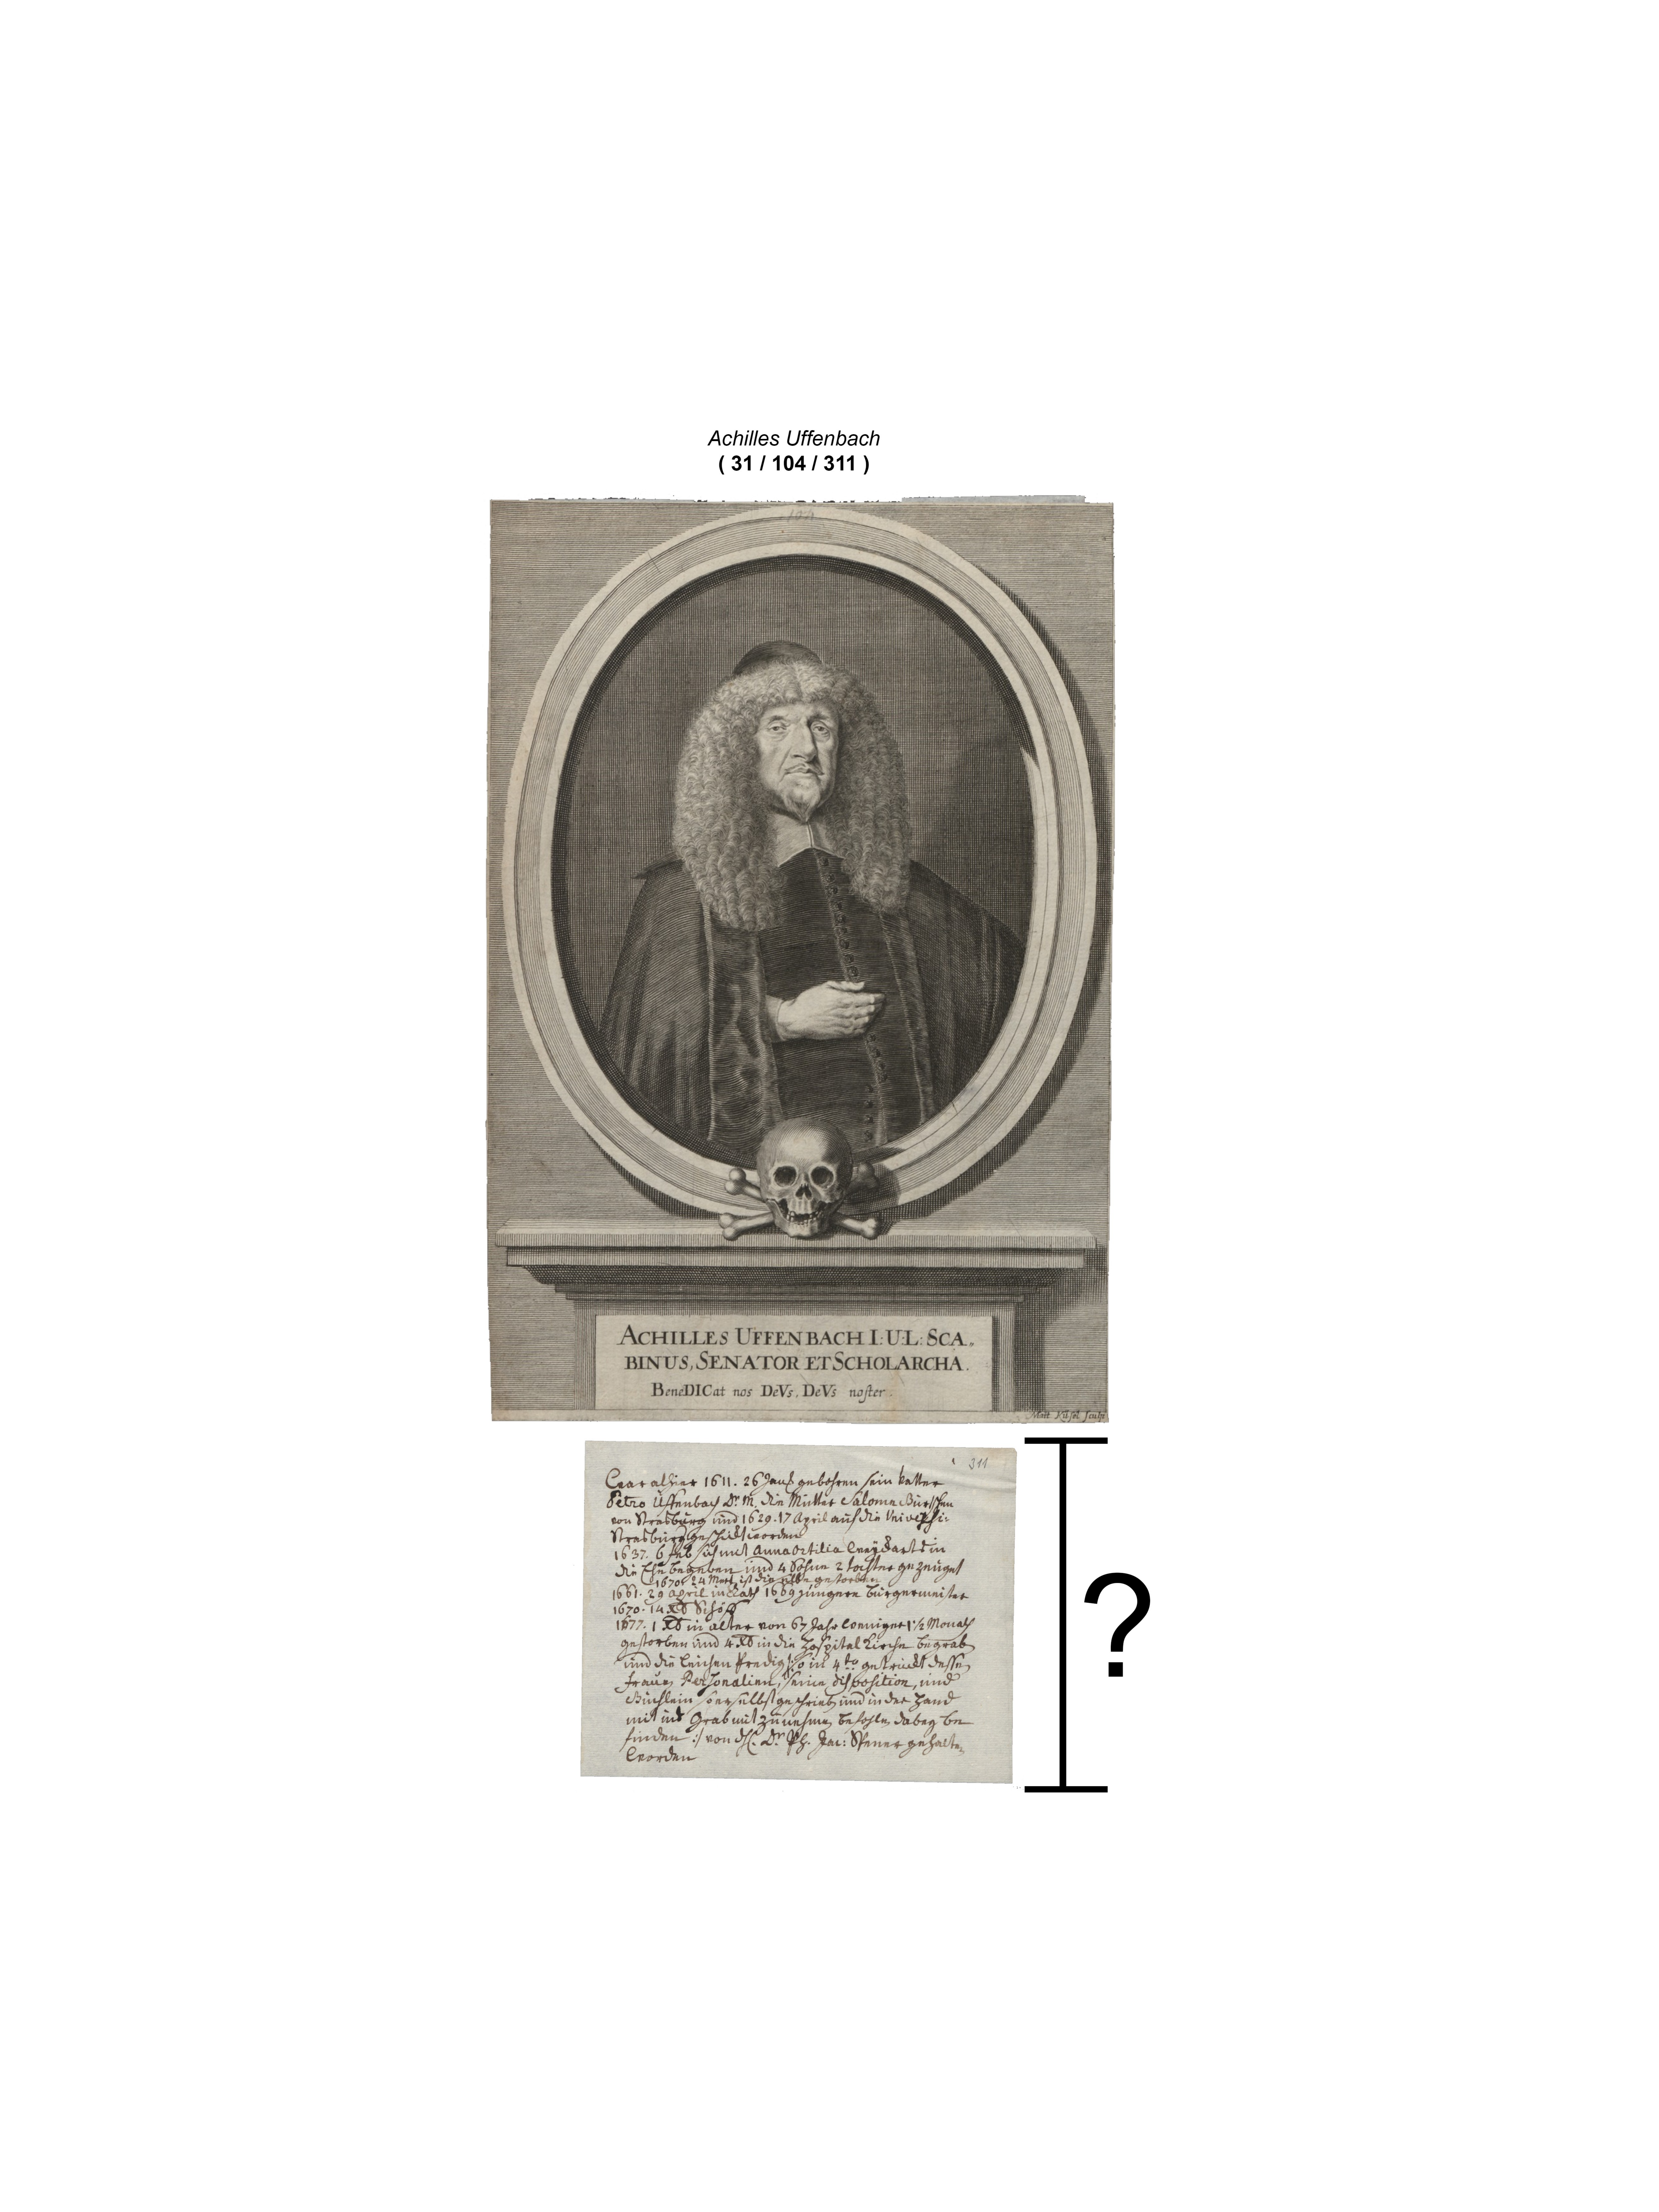 Achilles Uffenbach
( 31 / 104 / 311 )
104
ACHILLES UFFENBACH I: U: L: SCA„
BINUS, SENATOR ET SCHOLARCHA.
BeneDICat nos DeVs, DeVs noster.
Matt. Küsel sculp.
311
War alhier 1611. 26 gebohren sein Vatter
Petro Uffenbach Dr. M. die Mutter Salome
von Strasburg und 1629. 17 April auf die
Strasburg geschickt worden
1637. 6 Feb sich mit Anna Ottilia Weydarts in
die Ehe begeben und 4 Söhne 2 tochter gezeuget
1670. 24 Mert. ist die selbe gestorben
1661. 29 April in Rath 1669 jüngere bürgermeister
1670. 14. Xb Schöff
1677. 1 Xb in alter von 67 Jahr weniger 1½ Monath
gestorben und 4. Xb in die Hospital Kirche begrab
und die Leichen Predigt so in 4to getruckt dessen
frauen Personalien, seine disposition, und
Büchlein so er selbst geschrieb und in der Hand
mit ins Grab mit zu nehmen befohlen dabey be
finden :/ von Dr. Ph. Jac: Spener gehalten
worden
?